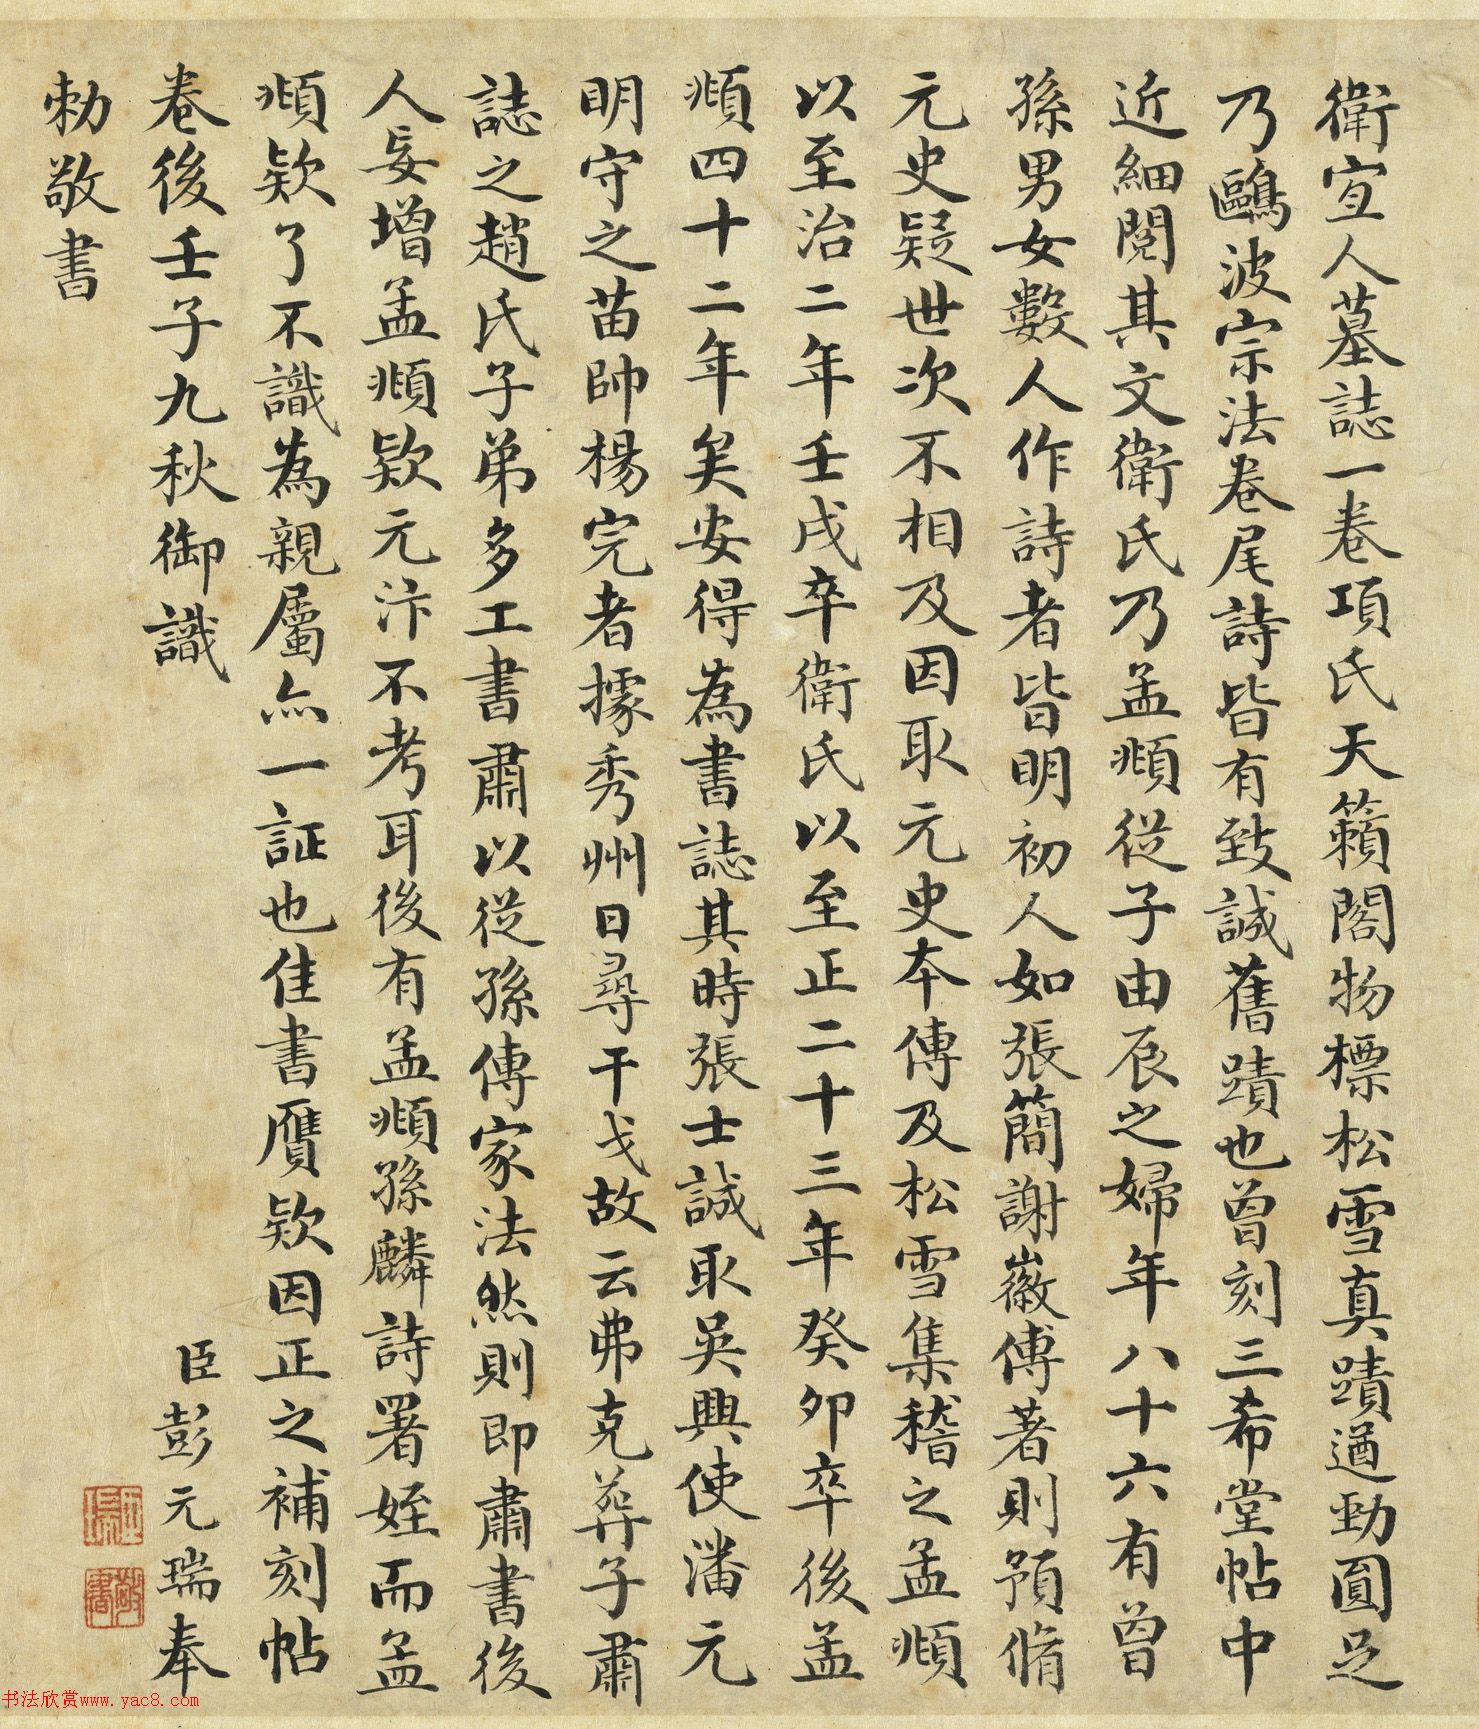 衛宜人墓誌一卷項氏天籟閣物標松雪真蹟遒勁圓足
乃鷗波宗法卷尾詩皆有致誠舊蹟也曾刻三希堂帖中
近細閱其文衛氏乃孟頫從子由辰之婦年八十六有曾
孫男女數人作詩者皆明初人如張簡謝徽傅著則預脩
元史疑世次不相及因取元史本傳及松雪集稽之孟頫
以至治二年壬戌卒衛氏以至正二十三年癸卯卒後孟
頫四十二年矣安得為書誌其時張士誠取吳興使潘元
明守之苗帥楊完者據秀州日尋干戈故云弗克葬子肅
誌之趙氏子弟多工書肅以從孫傳家法然則即肅書後
人妄增孟頫欵元汴不考耳後有孟頫孫麟詩署姪而孟
頫欵了不識為親屬亦一証也佳書贋欵因正之補刻帖
卷後壬子九秋御識
臣彭元瑞奉
勅敬書
書法欣赏www.yac8.com